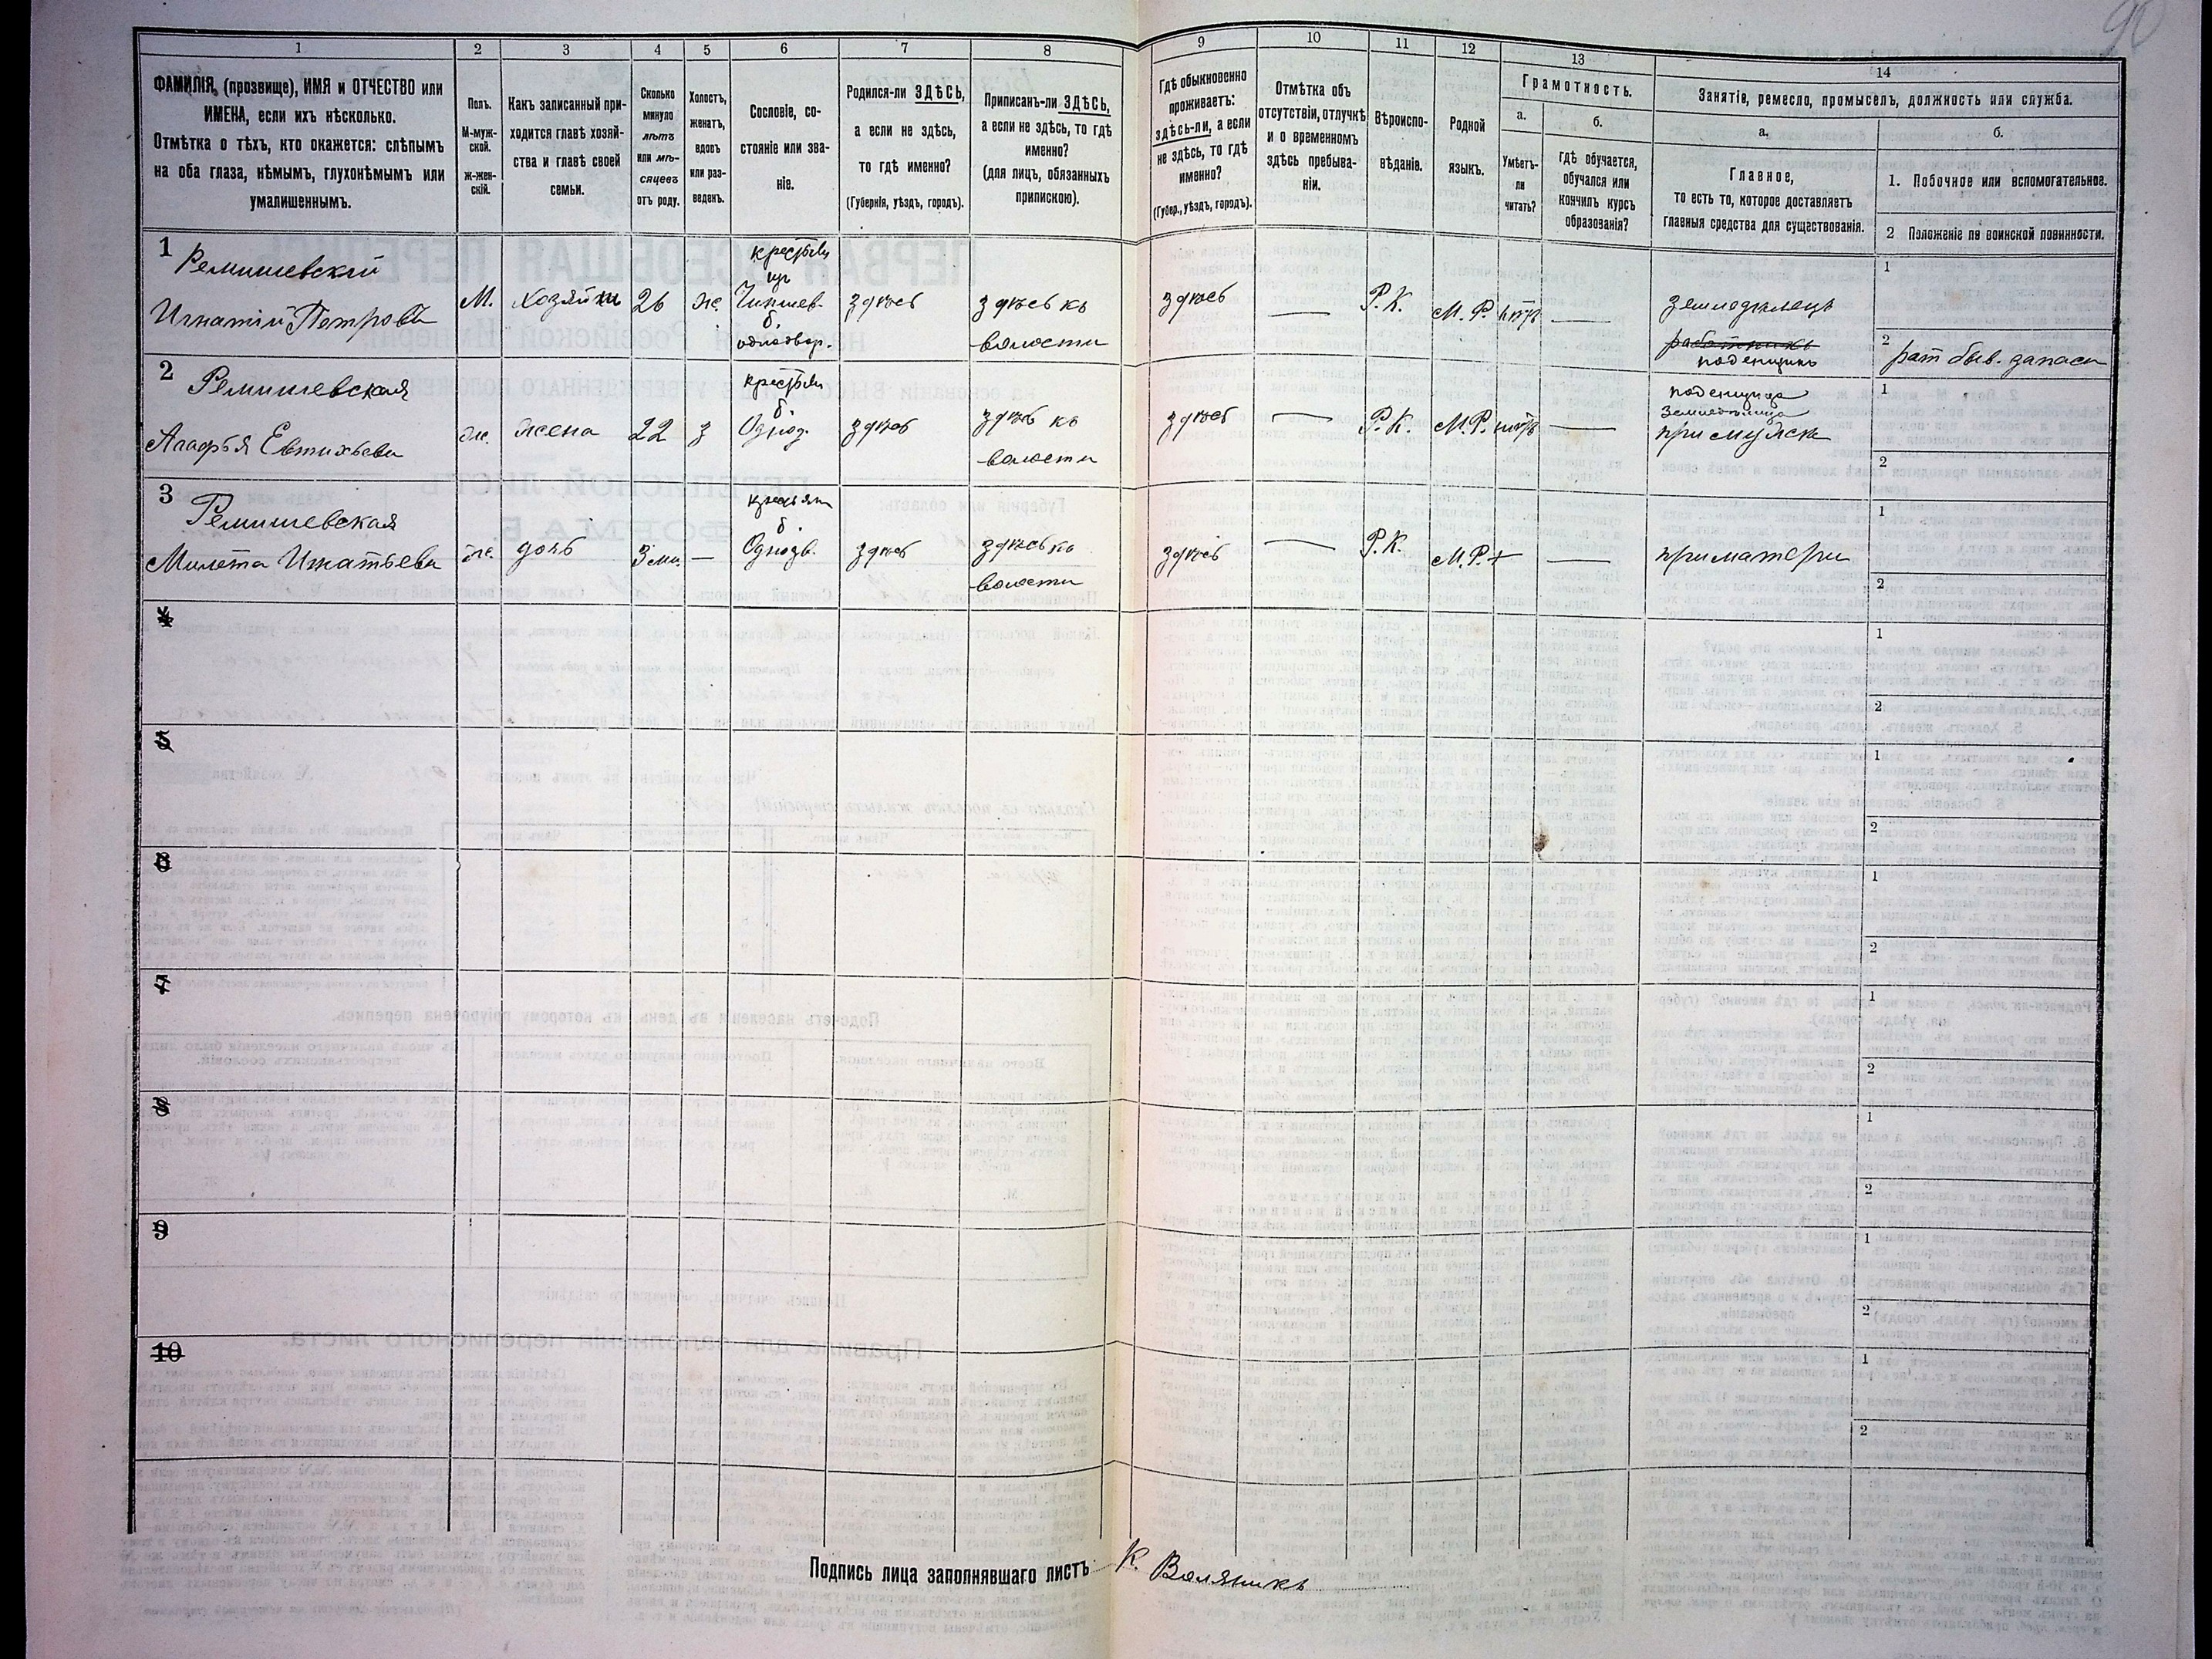 90
1 2 3 4 5 6 7 8 9 10 11 12 13 14
ФАМИЛІЯ, (прозвище), ИМЯ и ОТЧЕСТВО или
ИМЕНА, если ихъ нѣсколько.
Отмѣтка о тѣхъ, кто окажется: слѣпымъ
на оба глаза, нѣмымъ, глухонѣмымъ или
умалишеннымъ.
Полъ.
М-муж-
ской.
Ж-жен-
скій.
Какъ записанный при-
ходится главѣ хозяй-
ства и главѣ своей
семьи.
Сколько
минуло
лѣтъ
или мѣ-
сяцевъ
отъ роду.
Холостъ,
женатъ,
вдовъ
или раз-
веденъ.
Сословіе, со-
стояніе или зва-
ніе.
Родился-ли ЗДѢСЬ,
а если не здѣсь,
то гдѣ именно?
(Губернія, уѣздъ, городъ).
Приписанъ-ли ЗДѢСЬ,
а если не здѣсь, то гдѣ
именно?
(для лицъ, обязанныхъ
припискою).
Гдѣ обыкновенно
проживаетъ:
здѣсь-ли, а если
не здѣсь, то гдѣ
именно?
(Губер., уѣздъ, городъ).
Отмѣтка объ
отсутствіи, отлучкѣ
и о временномъ
здѣсь пребыва-
ніи.
Вѣроиспо-
вѣданіе.
Родной
языкъ.
Грамотность.
а.
Умѣетъ-
ли
читать?
б.
Гдѣ обучается,
обучался или
кончилъ курсъ
образованія?
Занятіе, ремесло, промыселъ, должность или служба.
а.
Главное,
то есть то, которое доставляетъ
главныя средства для существованія.
б.
1. Побочное или вспомогательное.
2 Положеніе по воинской повинности.
1
Ремишевскій
Игнатій Петровъ
М.
Хозяин
26
ж.
б.
однодвор.
здѣсь
здѣсь къ
волости
здѣсь
—
Р.К.
М.Р.
—
земледѣлецъ
работникъ
поденщикъ
1
2
рат быв. запаса
2
Ремишевская
Агафья Евтихьева
ж.
жена
22
з
б.
Однод.
здѣсь
здѣсь къ
волости
здѣсь
—
Р.К.
М.Р.
—
поденщица
при мужѣ
1
2
3
Ремишевская
Игнатьева
ж.
дочь
3 м.
—
б.
Однодв.
здѣсь
здѣсь къ
волости
здѣсь
—
Р.К.
М.Р.
+
—
при матери
1
2
4
1
2
5
1
2
6
1
2
7
1
2
8
1
2
9
1
2
10
1
2
Подпись лица заполнявшаго листъ К. Воляникъ